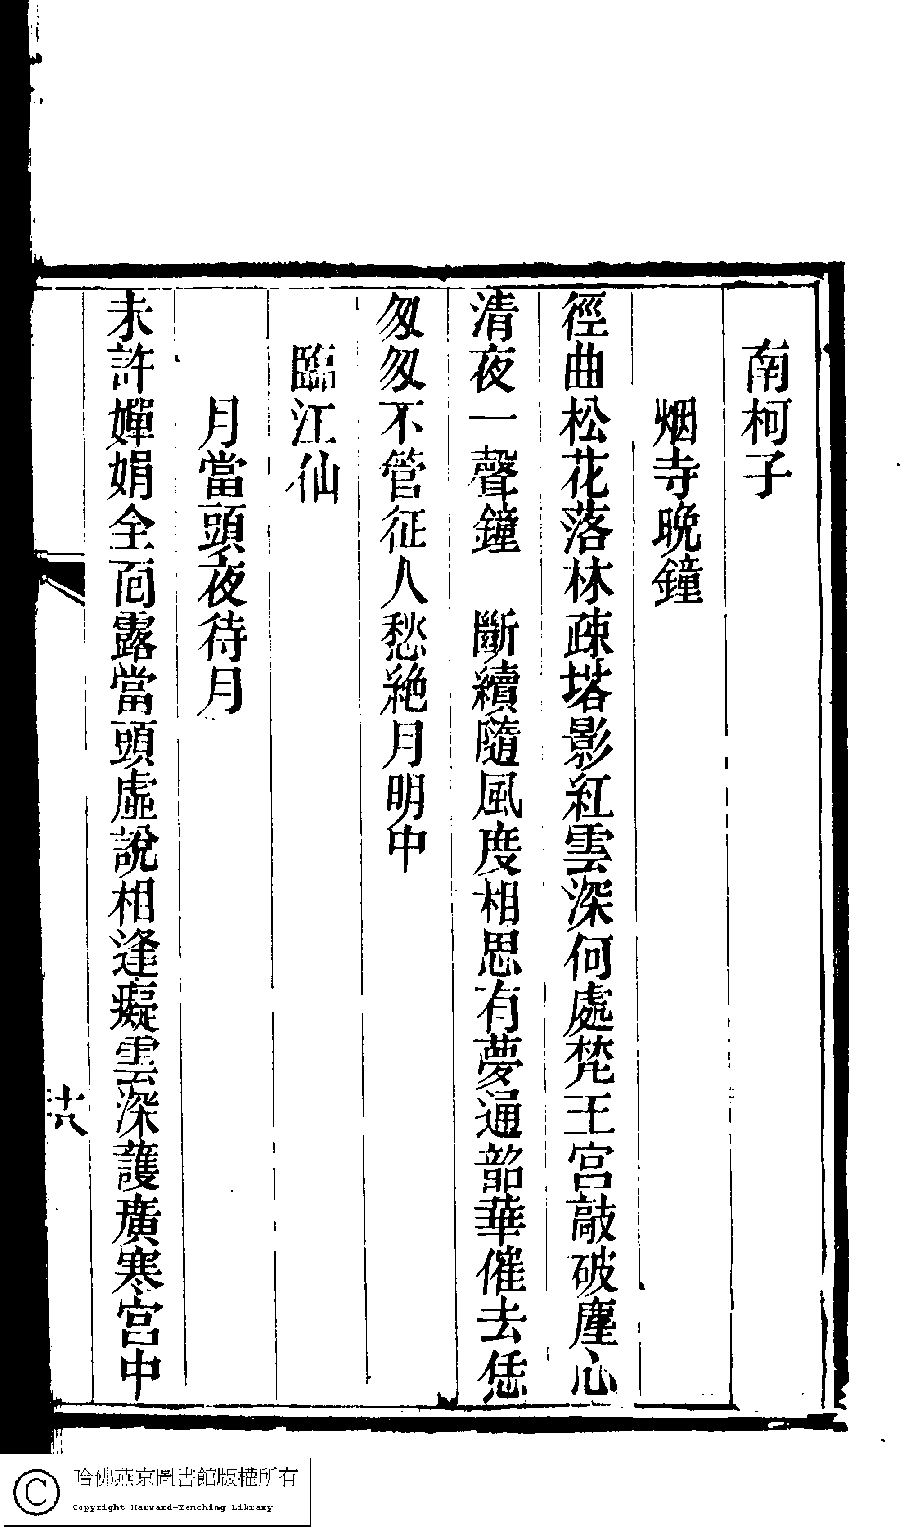 南柯子
烟寺晚鐘
徑曲松花落林疎塔影紅雲深何處梵王宮敲破塵心
清夜一聲鐘　斷續隨風度相思有夢通韶華催去恁
匆匆不管征人愁絶月明中
臨江仙
月當頭夜待月
未許嬋娟全面露當頭虛說相逢癡雲深護廣寒宮中
十八
哈佛燕京圖書館版權所有
Copyright Harvard-Yenching Library